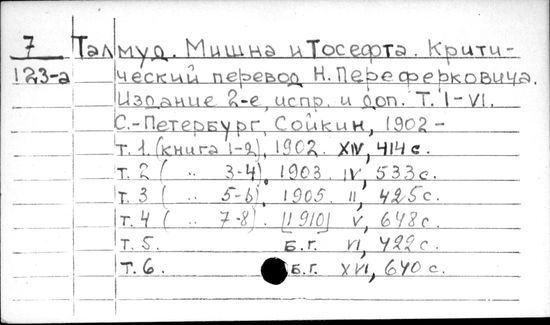 7 Талмуд. Мишна и Тосефта. Крити-
123-а ческий перевод Н. Переферковича.
Издание 2-е, испр. и доп. Т. I-VI.
С.-Петербург, Сойкин, 1902-
т. 1 (книга 1-2), 1902. XIV, 414 с.
т. 2 ( " 3-4), 1903. IV, 533 с.
т. 3 ( " 5-6), 1905. II, 425 с.
т. 4 ( " 7-8). [1910] V, 648 с.
т. 5. б.г. VI, 422 с.
т. 6. б.г. XVI, 640 с.